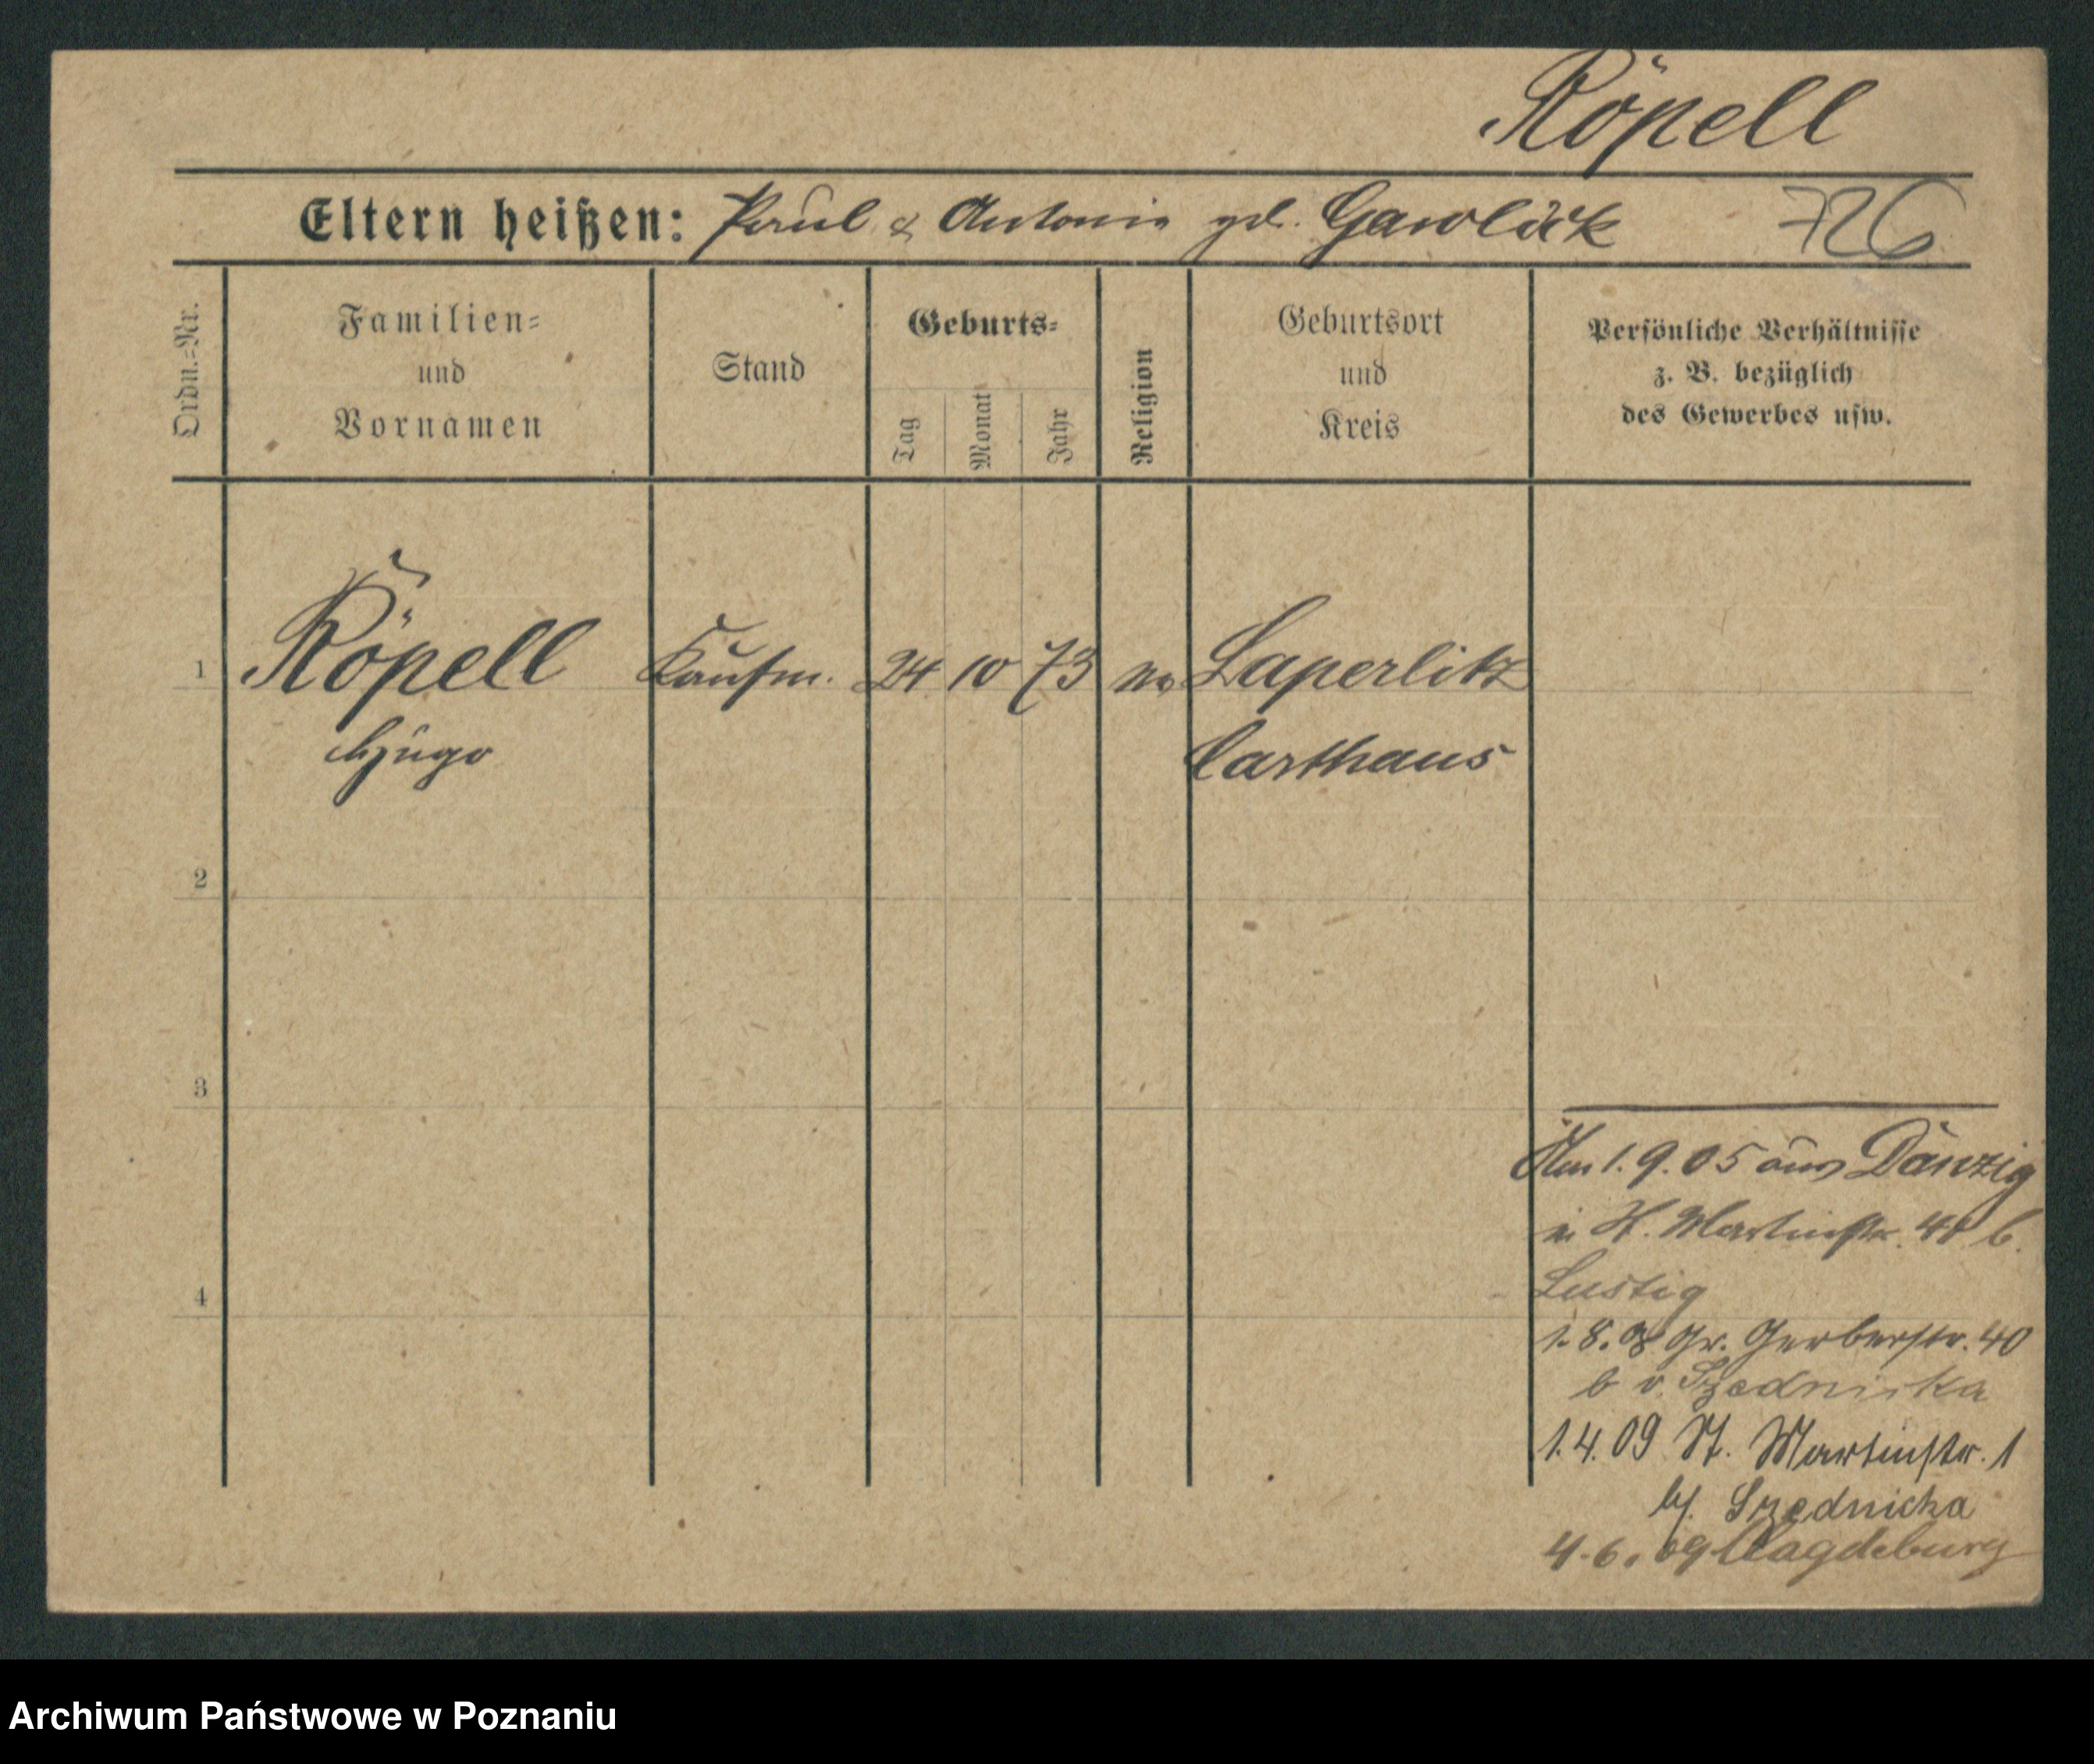 Röpell
Eltern heißen: Paul & Antonie geb. Gawlick 726
Ordn.=Nr.
Familien=
und
Vornamen
Stand
Geburts=
Tag
Monat
Jahr
Religion
Geburtsort
und
Kreis
Persönliche Verhältnisse
z. B. bezüglich
des Gewerbes usw.
1 Röpell Kaufm. 24 10 73 Laperlitz
Hugo Carthaus
2
3
Am 1.9.05 aus Danzig
in St. Martinstr. b.
4 Lustig
1.8.08 Gr. Gerberstr. 40
b v.
1.4.09 St. Martinstr. 1
b/. Szednicka
4.6.09 Magdeburg
Archiwum Państwowe w Poznaniu